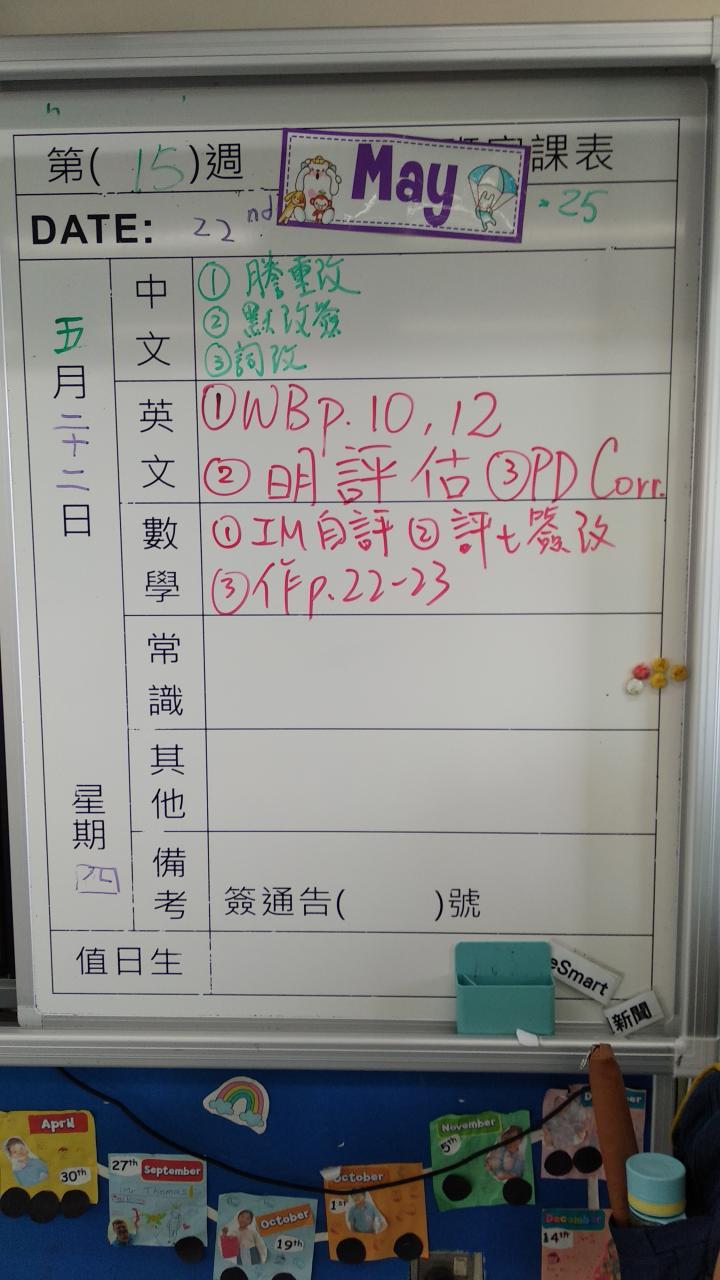 第( 15 )週
May
家課表
DATE: 22nd
.25
五月二十二日
星期四
中文
① 騰重改
② 默改簽
③ 詞改
英文
① WB p. 10, 12
② 明評估 ③ PD Corr.
數學
① IM自評 ② 評七簽改
③ 作p.22-23
常識
其他
備考
簽通告( )號
值日生
eSmart
新聞
April
30th
27th September
Mr Thomas
October
19th
October
1st
November
5th
December
14th